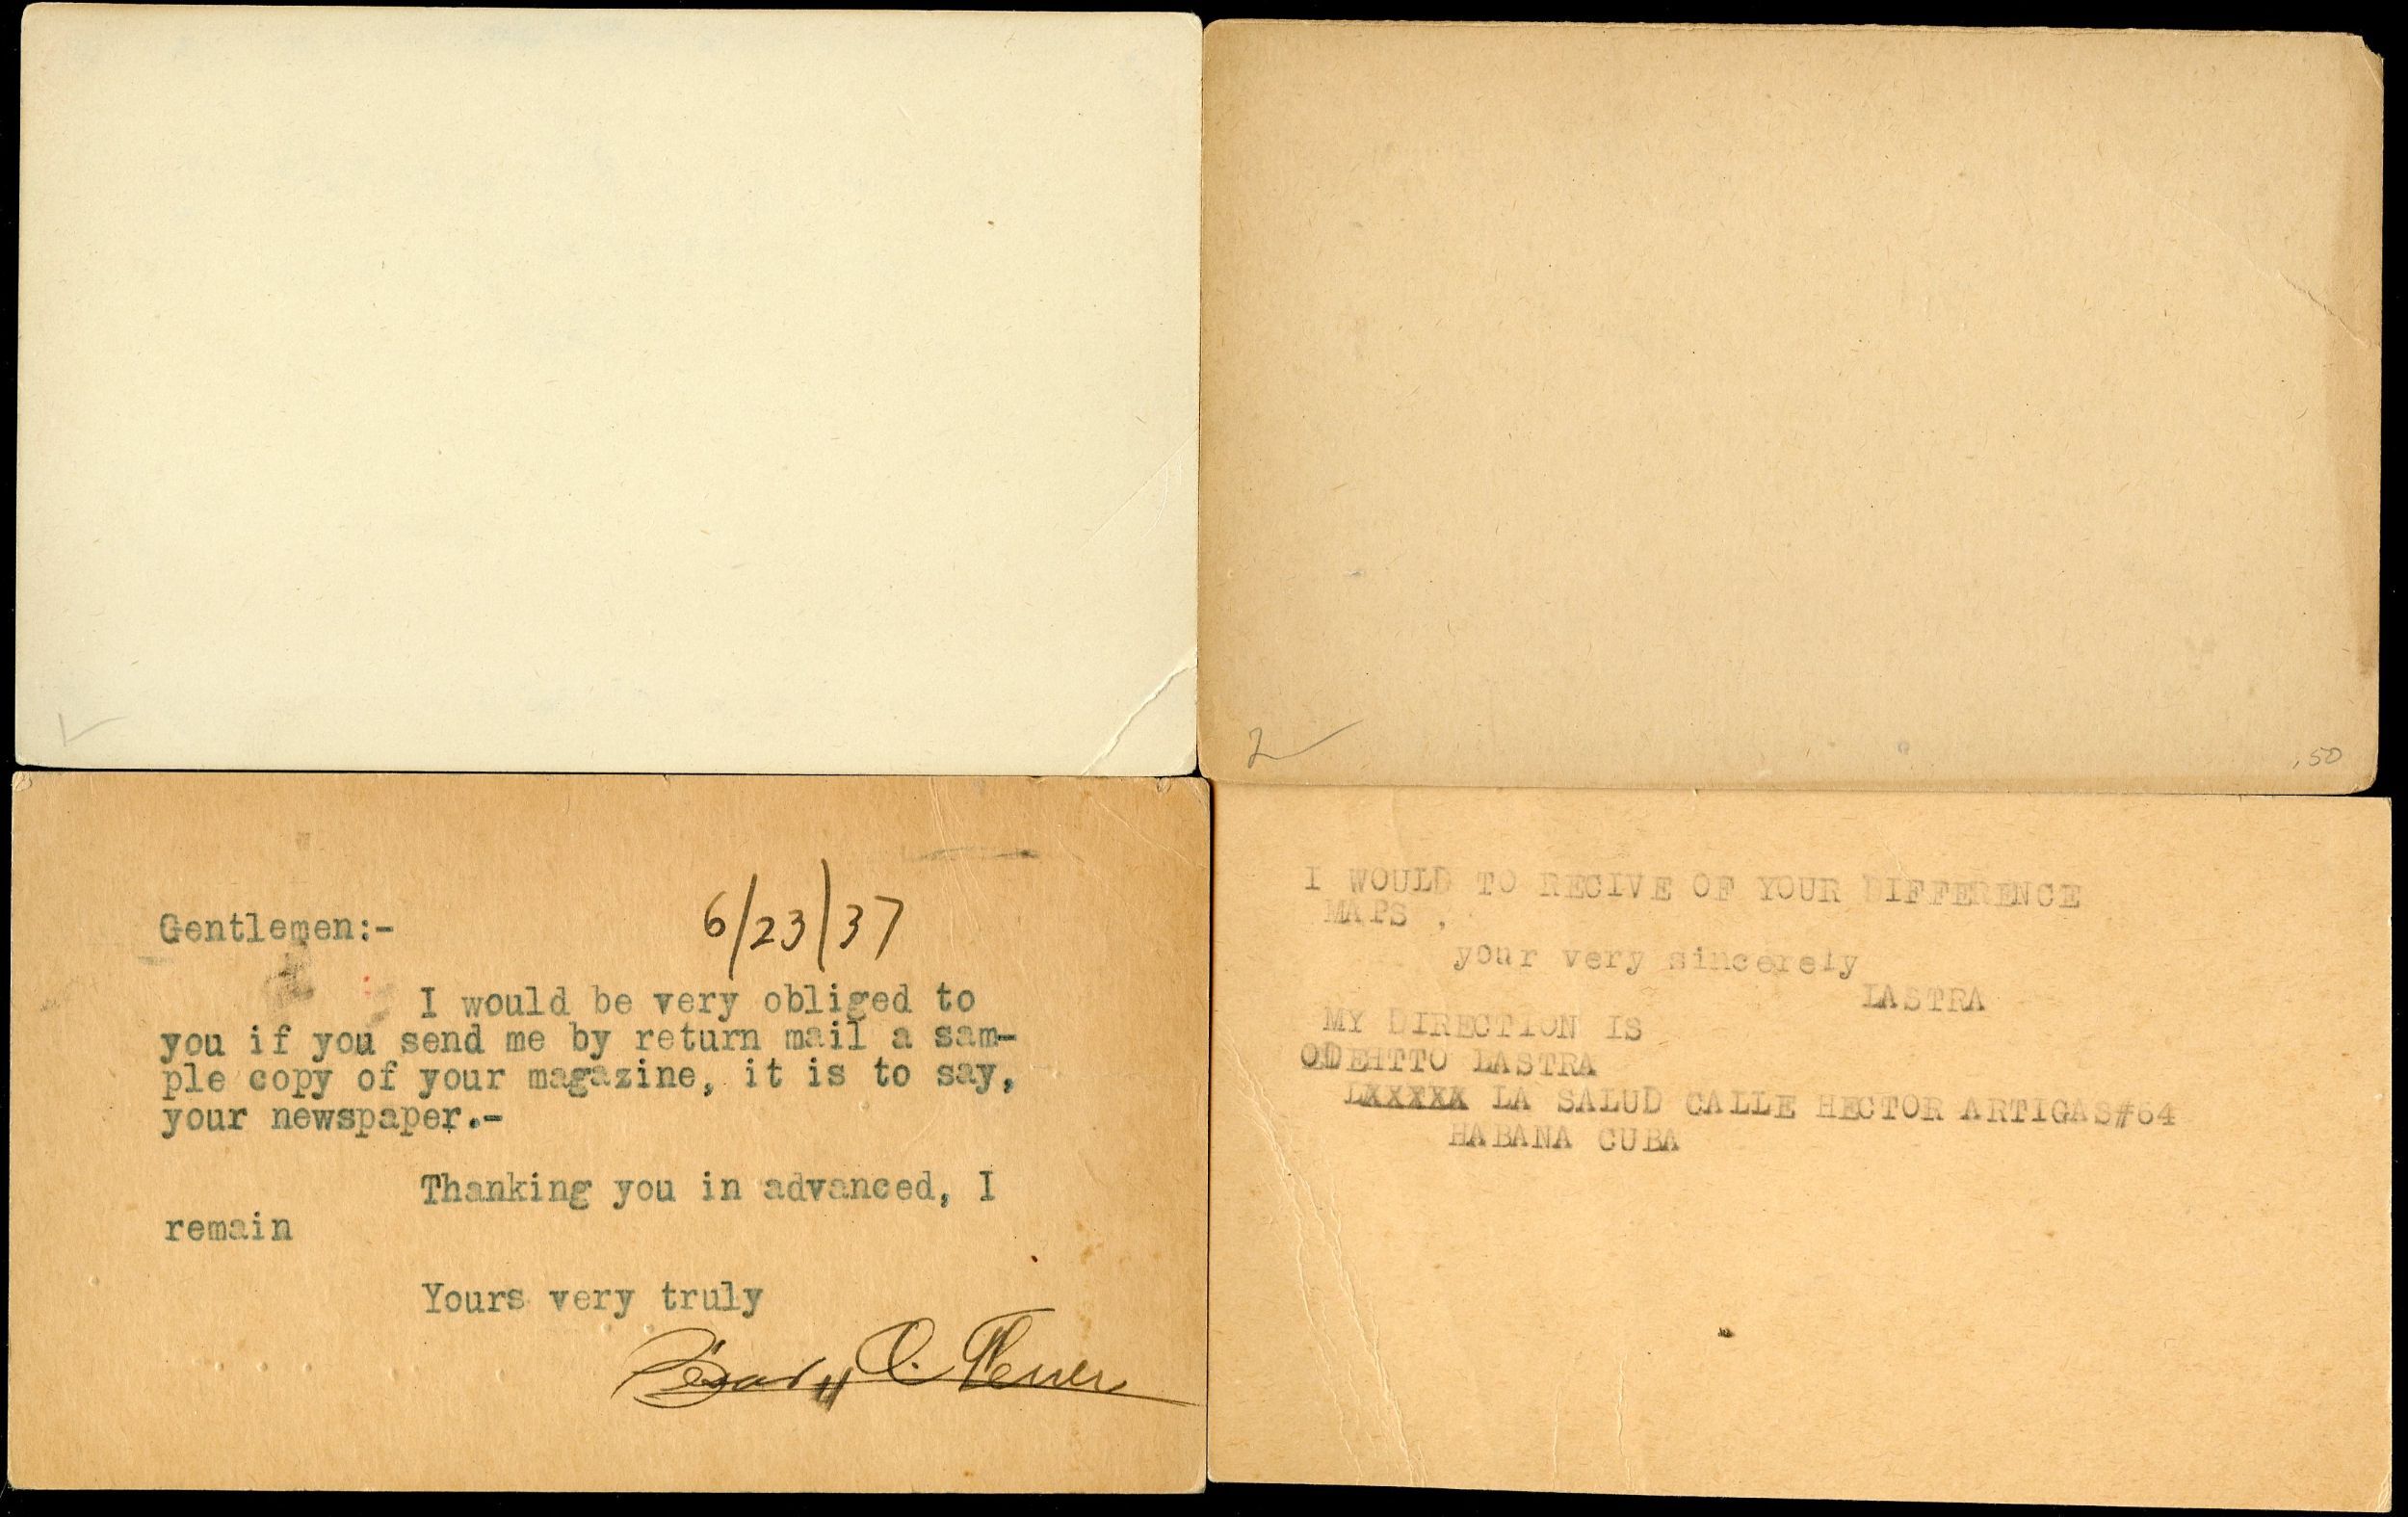 2
.50
6/23/37
Gentlemen:-
I would be very obliged to
you if you send me by return mail a sam-
ple copy of your magazine, it is to say,
your newspaper.-
Thanking you in advanced, I
remain
Yours very truly
I WOULD TO RECIVE OF YOUR DIFFERENCE
MAPS .
your very sincerely
LASTRA
MY DIRECTION IS
LASTRA
LXXXXX LA SALUD CALLE HECTOR ARTIGAS#64
HABANA CUBA